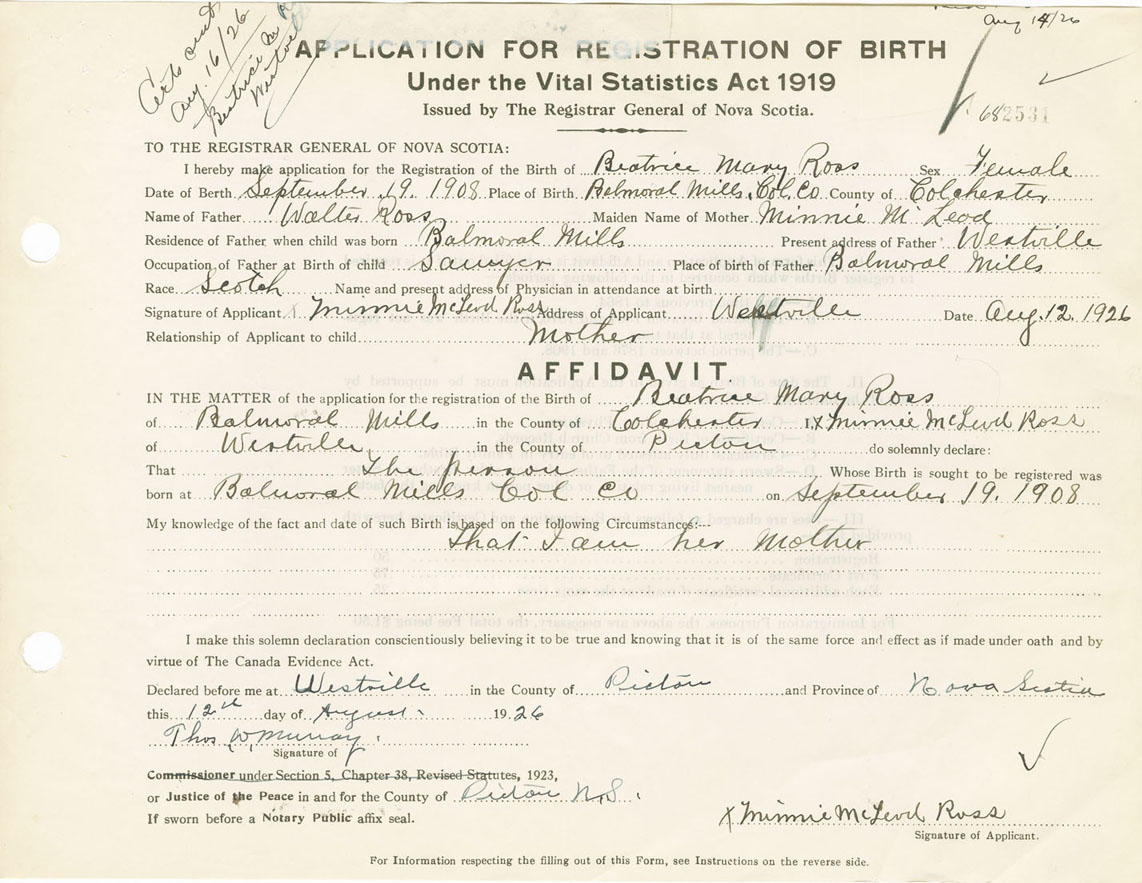 Certs sent
Aug. 16/26
Beatrice M
Westville
Aug 14/26
APPLICATION FOR REGISTRATION OF BIRTH
Under the Vital Statistics Act 1919
Issued by The Registrar General of Nova Scotia.
682531
TO THE REGISTRAR GENERAL OF NOVA SCOTIA:
I hereby make application for the Registration of the Birth of Beatrice Mary Ross Sex Female
Date of Berth September 19. 1908 Place of Birth Balmoral Mills. Col. Co County of Colchester
Name of Father Walter Ross Maiden Name of Mother Minnie McLeod
Residence of Father when child was born Balmoral Mills Present address of Father Westville
Occupation of Father at Birth of child Sawyer Place of birth of Father Balmoral Mills
Race Scotch Name and present address of Physician in attendance at birth
Signature of Applicant x Minnie McLeod Ross Address of Applicant Westville Date Aug. 12. 1926
Relationship of Applicant to child Mother
AFFIDAVIT
IN THE MATTER of the application for the registration of the Birth of Beatrice Mary Ross
of Balmoral Mills in the County of Colchester I, x Minnie McLeod Ross
of Westville in the County of Pictou do solemnly declare:
That The person Whose Birth is sought to be registered was
born at Balmoral Mills Col Co on September 19. 1908
My knowledge of the fact and date of such Birth is based on the following Circumstances:--
That I am her Mother
I make this solemn declaration conscientiously believing it to be true and knowing that it is of the same force and effect as if made under oath and by
virtue of The Canada Evidence Act.
Declared before me at Westville in the County of Pictou and Province of Nova Scotia
this 12th day of August 1926
Thos W Murray
Signature of
Commissioner under Section 5, Chapter 38, Revised Statutes, 1923,
or Justice of the Peace in and for the County of Pictou N.S.
If sworn before a Notary Public affix seal.
x Minnie McLeod Ross
Signature of Applicant.
For Information respecting the filling out of this Form, see Instructions on the reverse side.